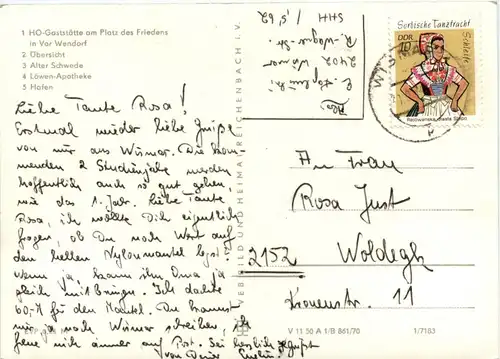 1 HO-Gaststätte am Platz des Friedens
in Vor Wendorf
2 Übersicht
3 Alter Schwede
4 Löwen-Apotheke
5 Hafen
Liebe Tante Rosa!
Erstmal wieder liebe Grüße
von mir aus Wismar. Die kom-
menden 2 Studienjahre werden
hoffentlich auch so gut gehen,
wie das 1. Jahr. Liebe Tante
Rosa, ich wollte Dich eigentlich
fragen, ob Du noch Wert auf
den hellen Nylonmantel legst?
wenn ja, kann ihn Oma ja
gleich mitbringen. Ich dachte
60,-M für den Mantel. Du kannst
mir ja nach Wismar schreiben, ich
freue mich immer auf Post. Sei herzlich gegrüßt
von Deiner
VEB BILD UND HEIMAT REICHENBACH i. V.
Abs.
2402 Wismar
SHH
Sorbische Tanztracht
DDR
10
Schleife
An Frau
Rosa Just
2152 Woldegk
11
V 11 50 A 1/B 861/70 1/7183